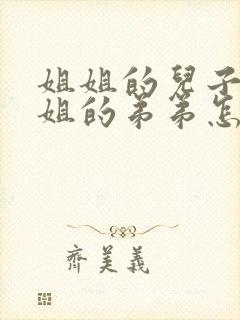 姐姐的兒子
姐的弟弟怎
齊美義